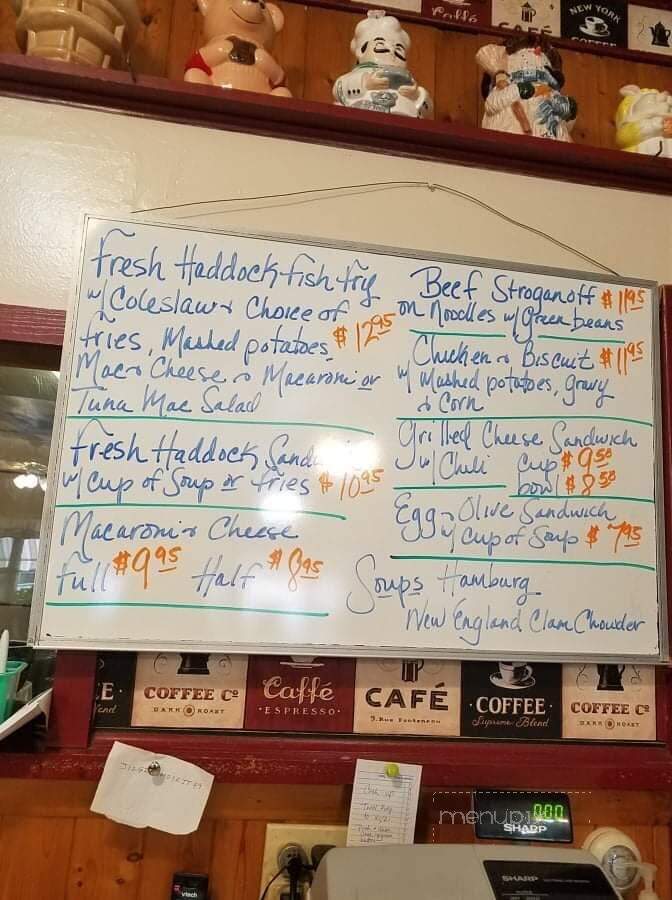 NEW YORK
COFFEE
Caffé
CAFÉ
Fresh Haddock Fish Fry
w/ Coleslaw & Choice of
fries, Mashed potatoes, $12.95
Mac & Cheese & Macaroni or
Tuna Mac Salad
Fresh Haddock
w/ Cup of Soup or fries $10.95
Macaroni & Cheese
Full $9.95 Half $8.95
Beef Stroganoff $11.95
on Noodles w/ Green beans
Chicken & Biscuit $11.95
w/ Mashed potatoes, gravy
& Corn
Grilled Cheese Sandwich
w/ Chili cup $9.50
bowl $8.50
Egg & Olive Sandwich
w/ Cup of Soup $7.95
Soups Hamburg
New England Clam Chowder
COFFEE Cº
DARK ROAST
Caffé
ESPRESSO
CAFÉ
COFFEE
Supreme Blend
COFFEE Cº
DARK ROAST
menupix
0.00
SHARP
SHARP
vtech